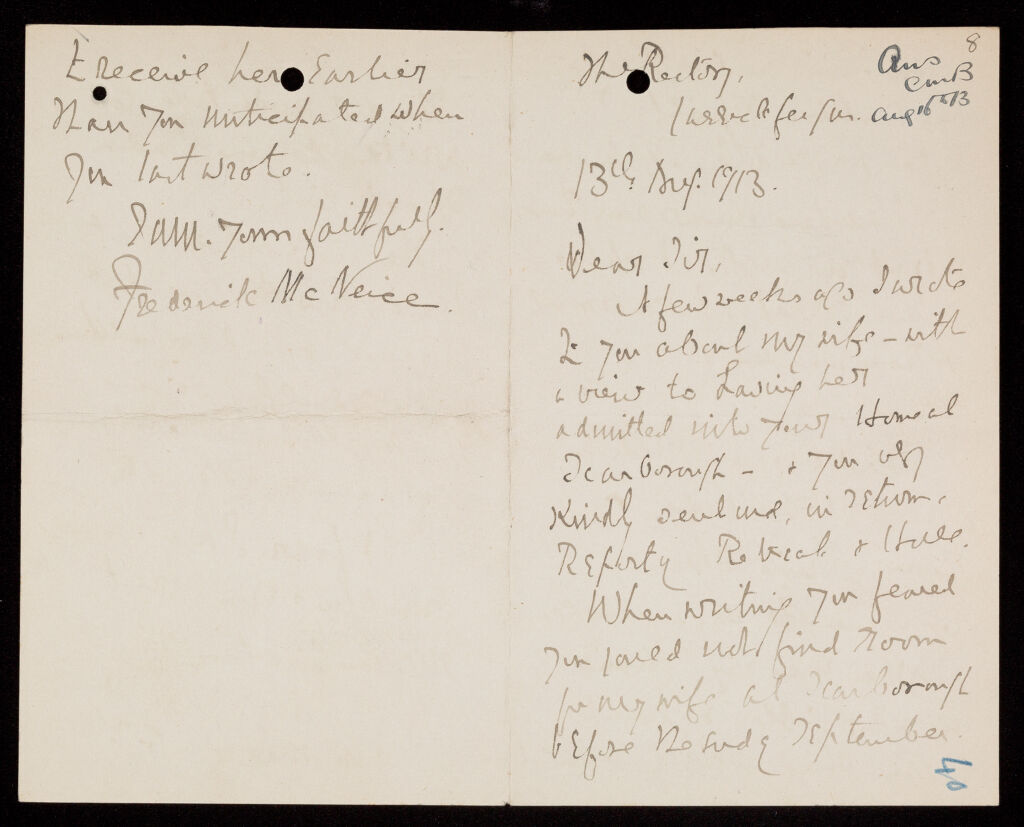 The Rectory,
Carrickfergus.
13th Aug. 1913.
Ans
CMB
Aug 16th 13
8
Dear Sir,
A few weeks ago I wrote
to you about my wife – with
a view to having her
admitted into your Home at
Scarborough – & you very
kindly sent me, in return,
Report of Retreat & Home.
When writing you feared
you could not find room
for my wife at Scarborough
before the end of September.
40
to receive her earlier
than you anticipated when
you last wrote.
I am. Yours faithfully.
Frederick McNeice